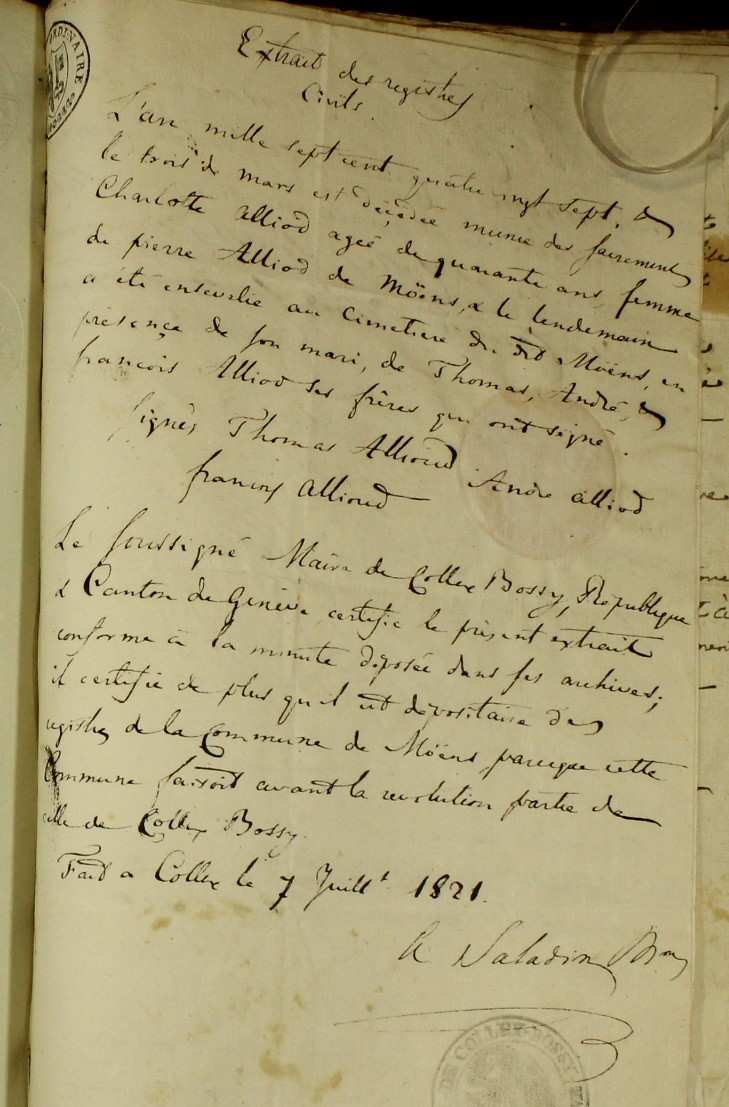 ORDINAIRE
Extrait des registres
Civils.
L'an mille sept cent quatre vingt sept, &
le trois de mars est décédée munie des sacremens
Charlotte Alliod ageé de quarante ans, femme
de pierre Alliod de Moëns, & le lendemain
a été ensevelie au Cimetiere du dit Moëns, en
présence de son mari, de Thomas, André, &
françois Alliod ses frères qui ont signé.
Signés Thomas Allioud Andre alliod
françois allioud
Le soussigné Maire de Collex Bossy, République
& Canton de Genève certifie le présent extrait
conforme à la minute déposée dans ses archives;
il certifie de plus qu'il est dépositaire des
registres de la Commune de Moëns, parceque cette
Commune faisoit avant la revolution partie de
celle de Collex Bossy.
Fait a Collex le 7 Juillt 1821.
Saladin
DE COLLEX-BOSSY